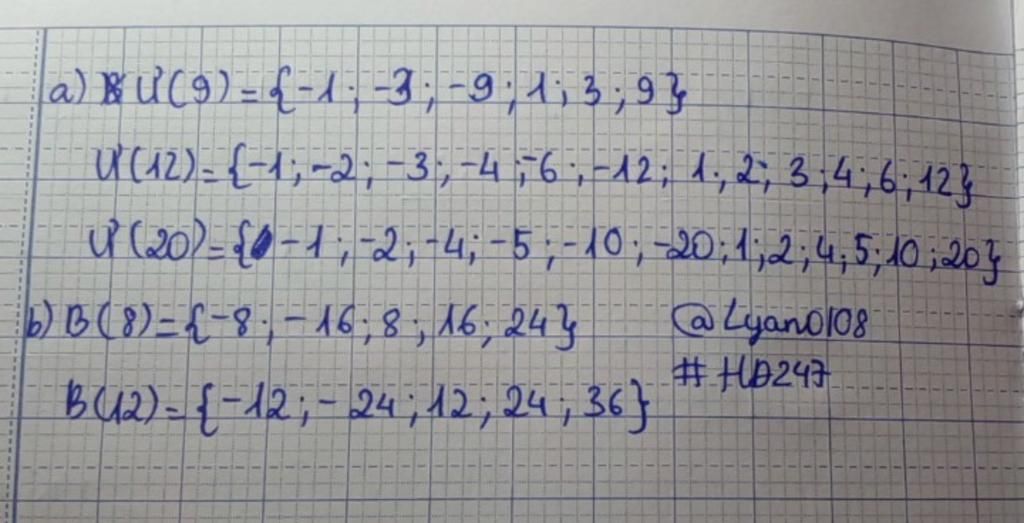 a) Ư(9) = {-1; -3; -9; 1; 3; 9}
Ư(12) = {-1; -2; -3; -4; -6; -12; 1; 2; 3; 4; 6; 12}
Ư(20) = {-1; -2; -4; -5; -10; -20; 1; 2; 4; 5; 10; 20}
b) B(8) = {-8; -16; 8; 16; 24}
@Lyan0108
#HD247
B(12) = {-12; -24; 12; 24; 36}